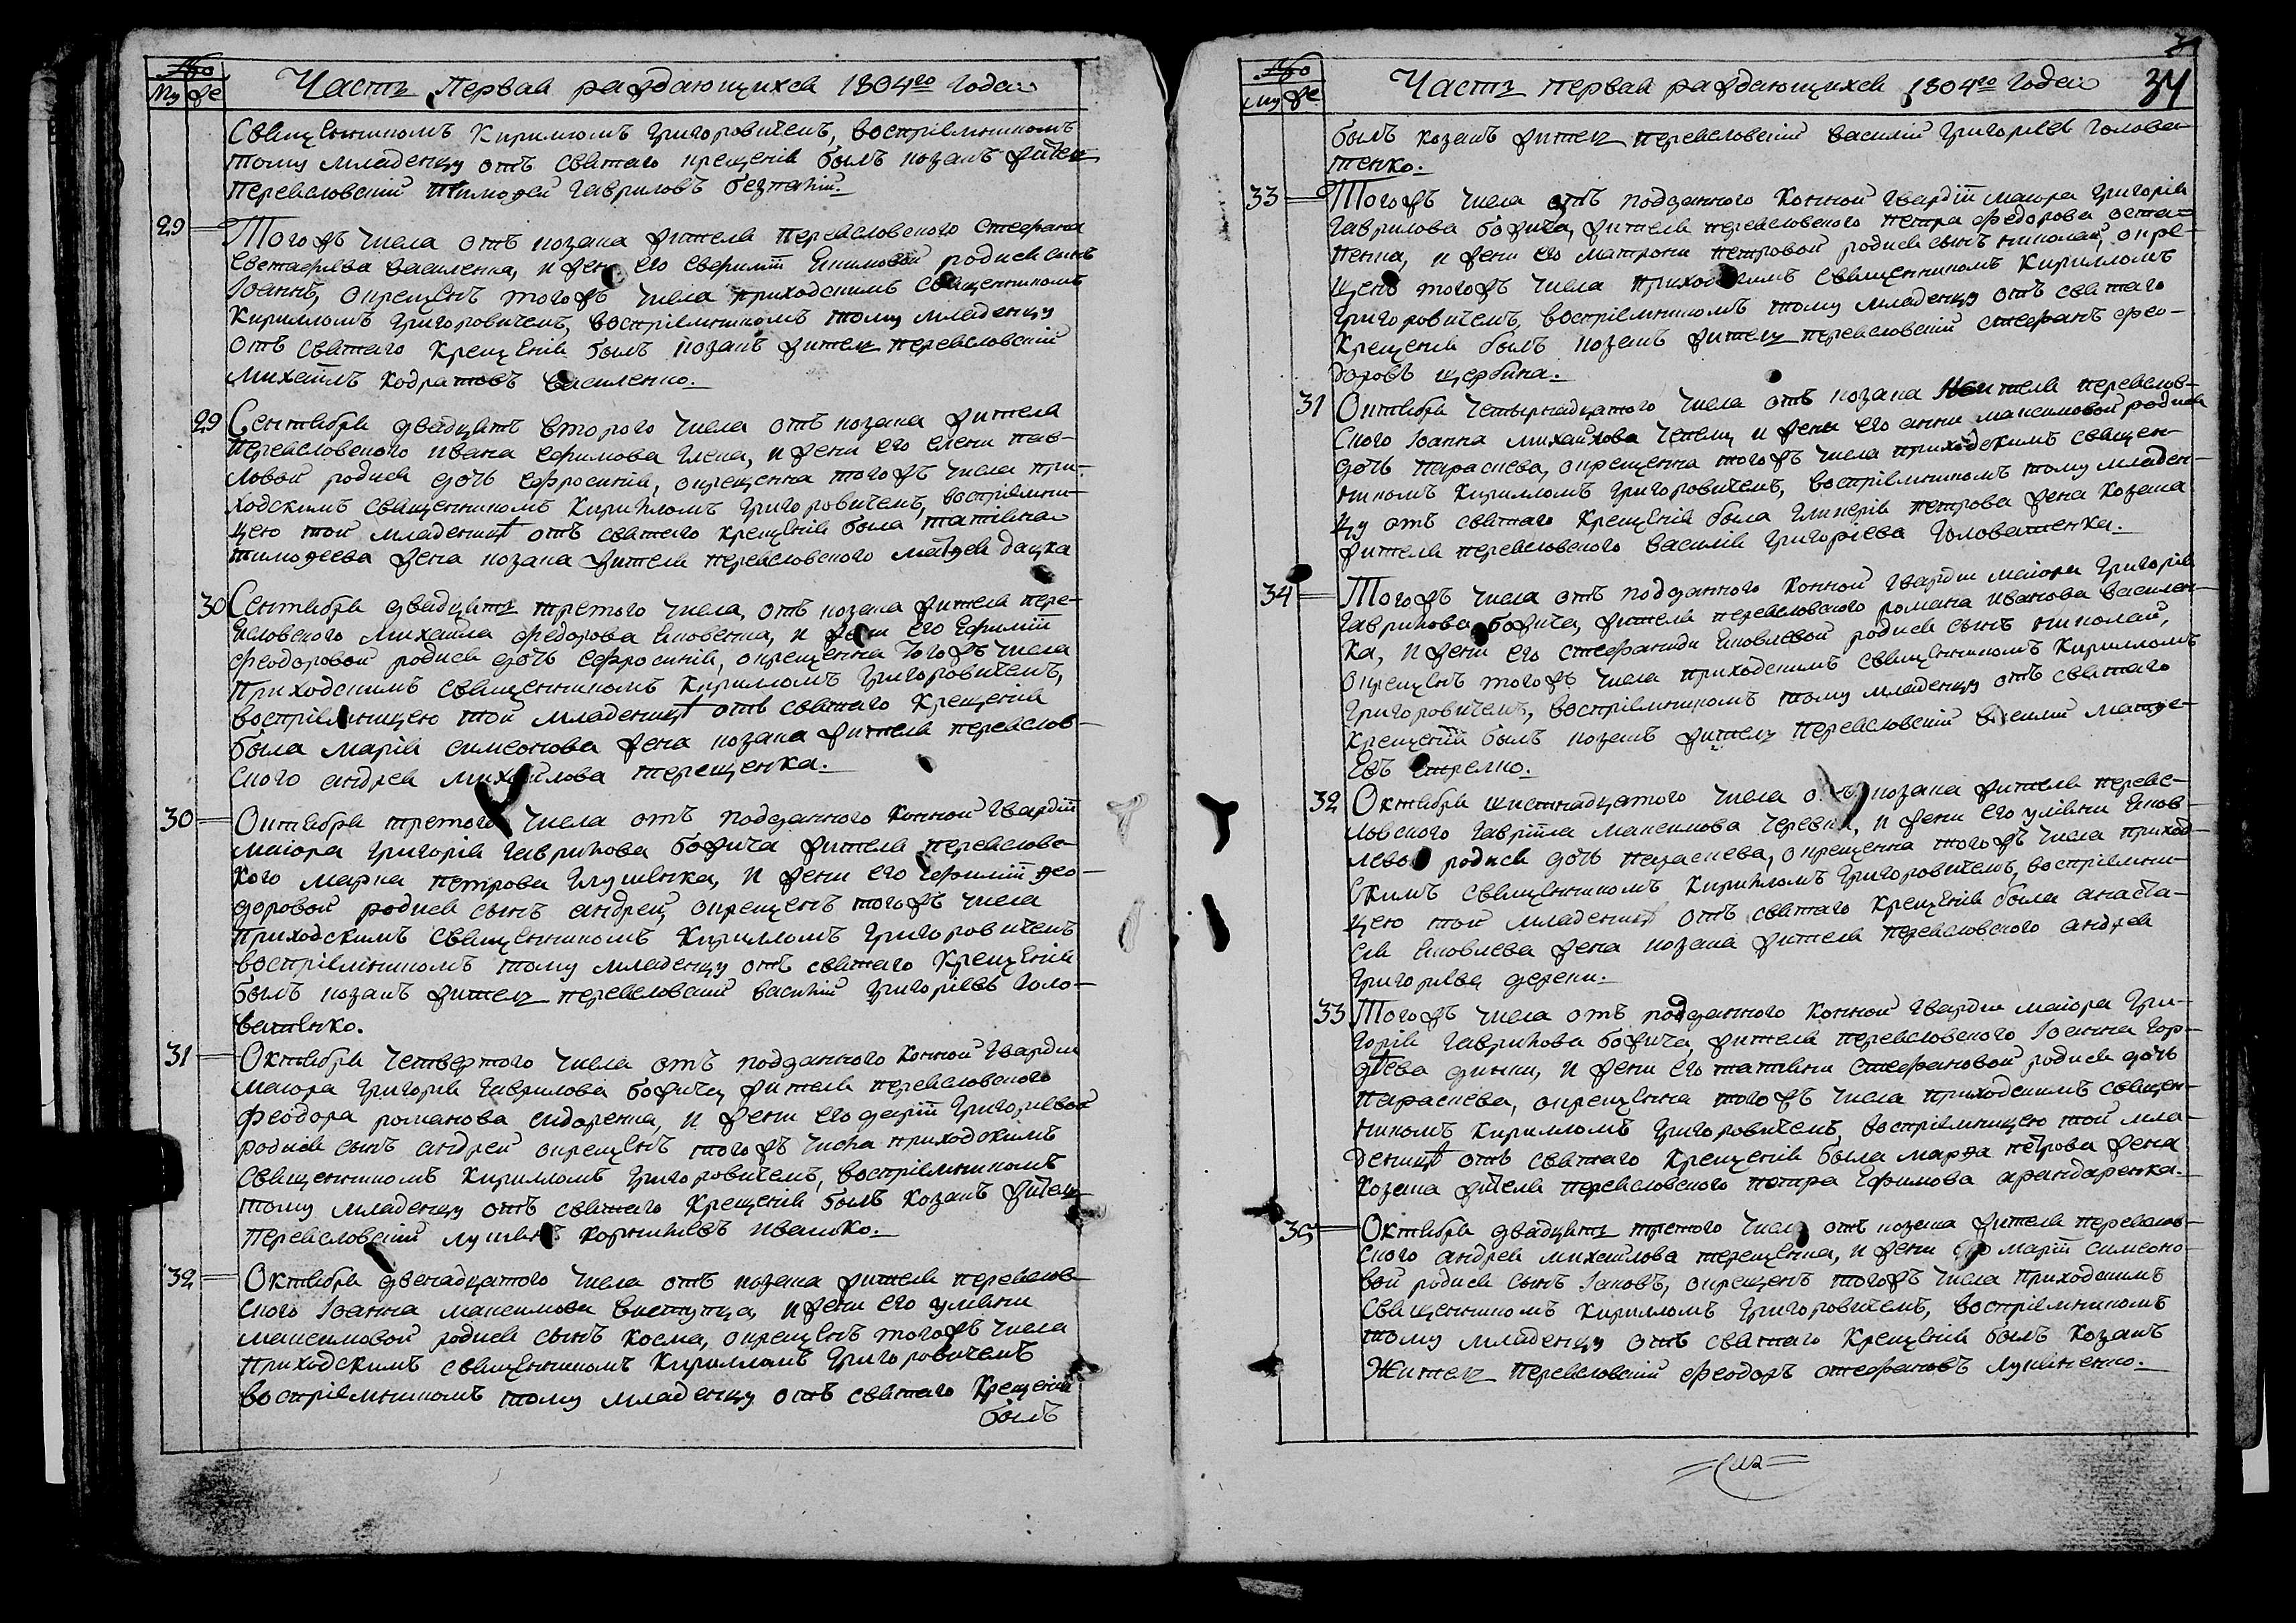 №
Му же
Часть Первая раждающихся 1804го Года
Священникомъ Кириломъ Григоровичемъ, воспріемникомъ
тому младенцу отъ святаго крещенія былъ козакъ житель
переясловскій тимофей гавриловъ безпалій.
29 Тогожъ числа отъ козака жителя переясловского стефана
Евстафіева василенка, и жени его Евфиміи Екимовой родися сынъ
Іоаннъ, окрещенъ тогожъ числа приходскимъ священникомъ
Кирилломъ Григоровичемъ, воспріемникомъ тому младенцу
отъ святаго крещенія былъ козакъ житель переясловскій
михаилъ кодратовъ василенко.
29 Сентября двадцать второго числа отъ козака жителя
переясловского ивана Ефимова жени его елени пав-
ловой родися дочь Ефросинія, окрещенна тогожъ числа при-
ходскимъ священникомъ Кирилломъ Григоровичемъ, воспріемни-
цею той младеницѣ отъ святаго крещенія была татіяна
тимофеева жена козака жителя переясловского матфея дацка
30 Сентября двадцать третого числа, отъ козака жителя пере-
ясловского михаила федорова яковенка, и жени его Ефиміи
феодоровой родися дочь Ефросинія, окрещенна тогожъ числа
приходскимъ священникомъ Кириломъ Григоровичемъ,
воспріемницею той младеницѣ отъ святаго крещенія
была марія симеонова жена козака жителя переяслов-
ского андрея михайлова терещенка.
30 Октября третого числа отъ подданного конной гвардіи
маіора григорія гаврилова божича жителя переяславс-
кого марка петрова глушенка, и жени его Ефиміи фео-
доровой родися сынъ андрей, окрещенъ тогожъ числа
приходскимъ священникомъ Кирилломъ Григоровичемъ
воспріемникомъ тому младенцу отъ святаго крещенія
былъ козакъ житель переясловскій василій григоріевъ голо-
ватенко.
31 Октября четвертого числа отъ подданного конной гвардіи
маіора григорія гаврилова божича, жителя переясловского
феодора романова сидоренка, и жени его даріи григоріевой
родися сынъ андрей окрещенъ тогожъ числа приходскимъ
священникомъ Кирилломъ Григоровичемъ, воспріемникомъ
тому младенцу отъ святаго крещенія былъ козакъ житель
переясловскій лукіянъ корниліевъ ивашко.
32 Октября двенадцатого числа отъ козака жителя переяслов-
ского Іоанна максимова виступца, и жени его уліяни
максимовой родися сынъ косма, окрещенъ тогожъ числа
приходскимъ священникомъ Кирилломъ Григоровичемъ
воспріемникомъ тому младенцу отъ святаго крещенія
былъ
№
му же
Часть первая раждающихся 1804го Года
34
былъ козакъ житель переясловскій василій григоріевъ голова-
тенко.
33 Тогожъ числа отъ подданного конной гвардіи маіора григорія
гаврилова божича, жителя переясловского петра федорова оста-
пенка, и жени его матрони петровой родися сынъ николай, окре-
щенъ тогожъ числа приходскимъ священникомъ Кирилломъ
Григоровичемъ, воспріемникомъ тому младенцу отъ святаго
крещенія былъ козакъ житель переясловскій стефанъ фео-
доровъ щербина.
31 Октября четырнадцатого числа отъ козака жителя переяслов-
ского Іоанна михайлова и жени его анни максимовой родися
дочь параскева, окрещенна тогожъ числа приходскимъ священ-
никомъ Кирилломъ Григоровичемъ, воспріемникомъ тому младен-
цу отъ святаго крещенія была гликерія петрова жена козака
жителя переясловского василія григоріева головатенка.
34 Тогожъ числа отъ подданного конной гвардіи маіора григорія
гаврилова божича, жителя переясловского романа иванова василен-
ка, и жени его стефаниди яковлевой родися сынъ николай,
окрещенъ тогожъ числа приходскимъ священникомъ Кирилломъ
Григоровичемъ, воспріемникомъ тому младенцу отъ святаго
крещенія былъ козакъ житель переясловскій василій матфе-
евъ
32 Октября шестнадцатого числа отъ козака жителя переяс-
ловского гавріила максимова и жени его уліяни яков-
левой родися дочь параскева, окрещенна тогожъ числа приход-
скимъ священникомъ Кирилломъ Григоровичемъ, воспріемни-
цею той младеницѣ отъ святаго крещенія была анаста-
сія яковлева жена козака жителя переясловского андрея
григоріева
33 Тогожъ числа отъ подданного конной гвардіи маіора гри-
горія гаврилова божича, жителя переясловского Іоанна гор-
дѣева и жени его татіяни стефановой родися дочь
параскева, окрещенна тогожъ числа приходскимъ священ-
никомъ Кирилломъ Григоровичемъ, воспріемницею той мла-
деницѣ отъ святаго крещенія была марфа петрова жена
козака жителя переясловского петра Ефимова арандаренка.
35 Октября двадцать третого числа отъ козака жителя переяслов-
ского андрея михайлова терещенка, и жени его маріи симеоно-
вой родися сынъ Іаковъ, окрещенъ тогожъ числа приходскимъ
священникомъ Кирилломъ Григоровичемъ, воспріемникомъ
тому младенцу отъ святаго крещенія былъ козакъ
житель переясловскій феодоръ стефановъ лукяненко.